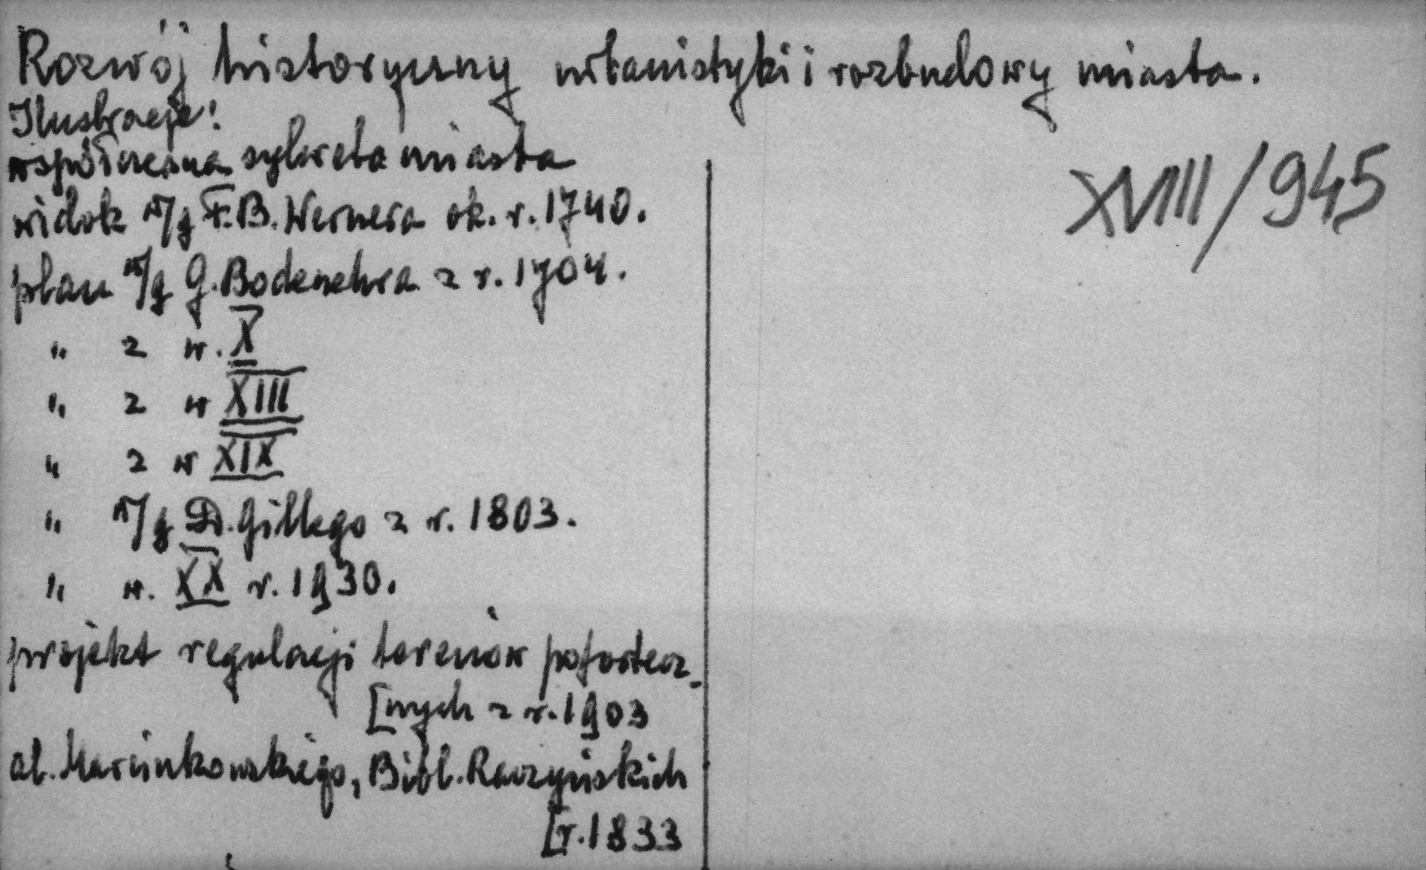 Rozwój historyczny urbanistyki i rozbudowy miasta.
Ilustracje:
współczesna sylweta miasta
XVIII/945
widok w/g F.B. Wernera ok. r. 1740.
plan w/g G. Bodenehra z r. 1704.
" z w. X
" z w XIII
" z w XIX
" w/g D. Gillego z r. 1803.
" w. XX r. 1930.
projekt regulacji terenów pofortecz-
[nych z r. 1903
al. Marcinkowskiego, Bibl. Raczyńskich
[r. 1833